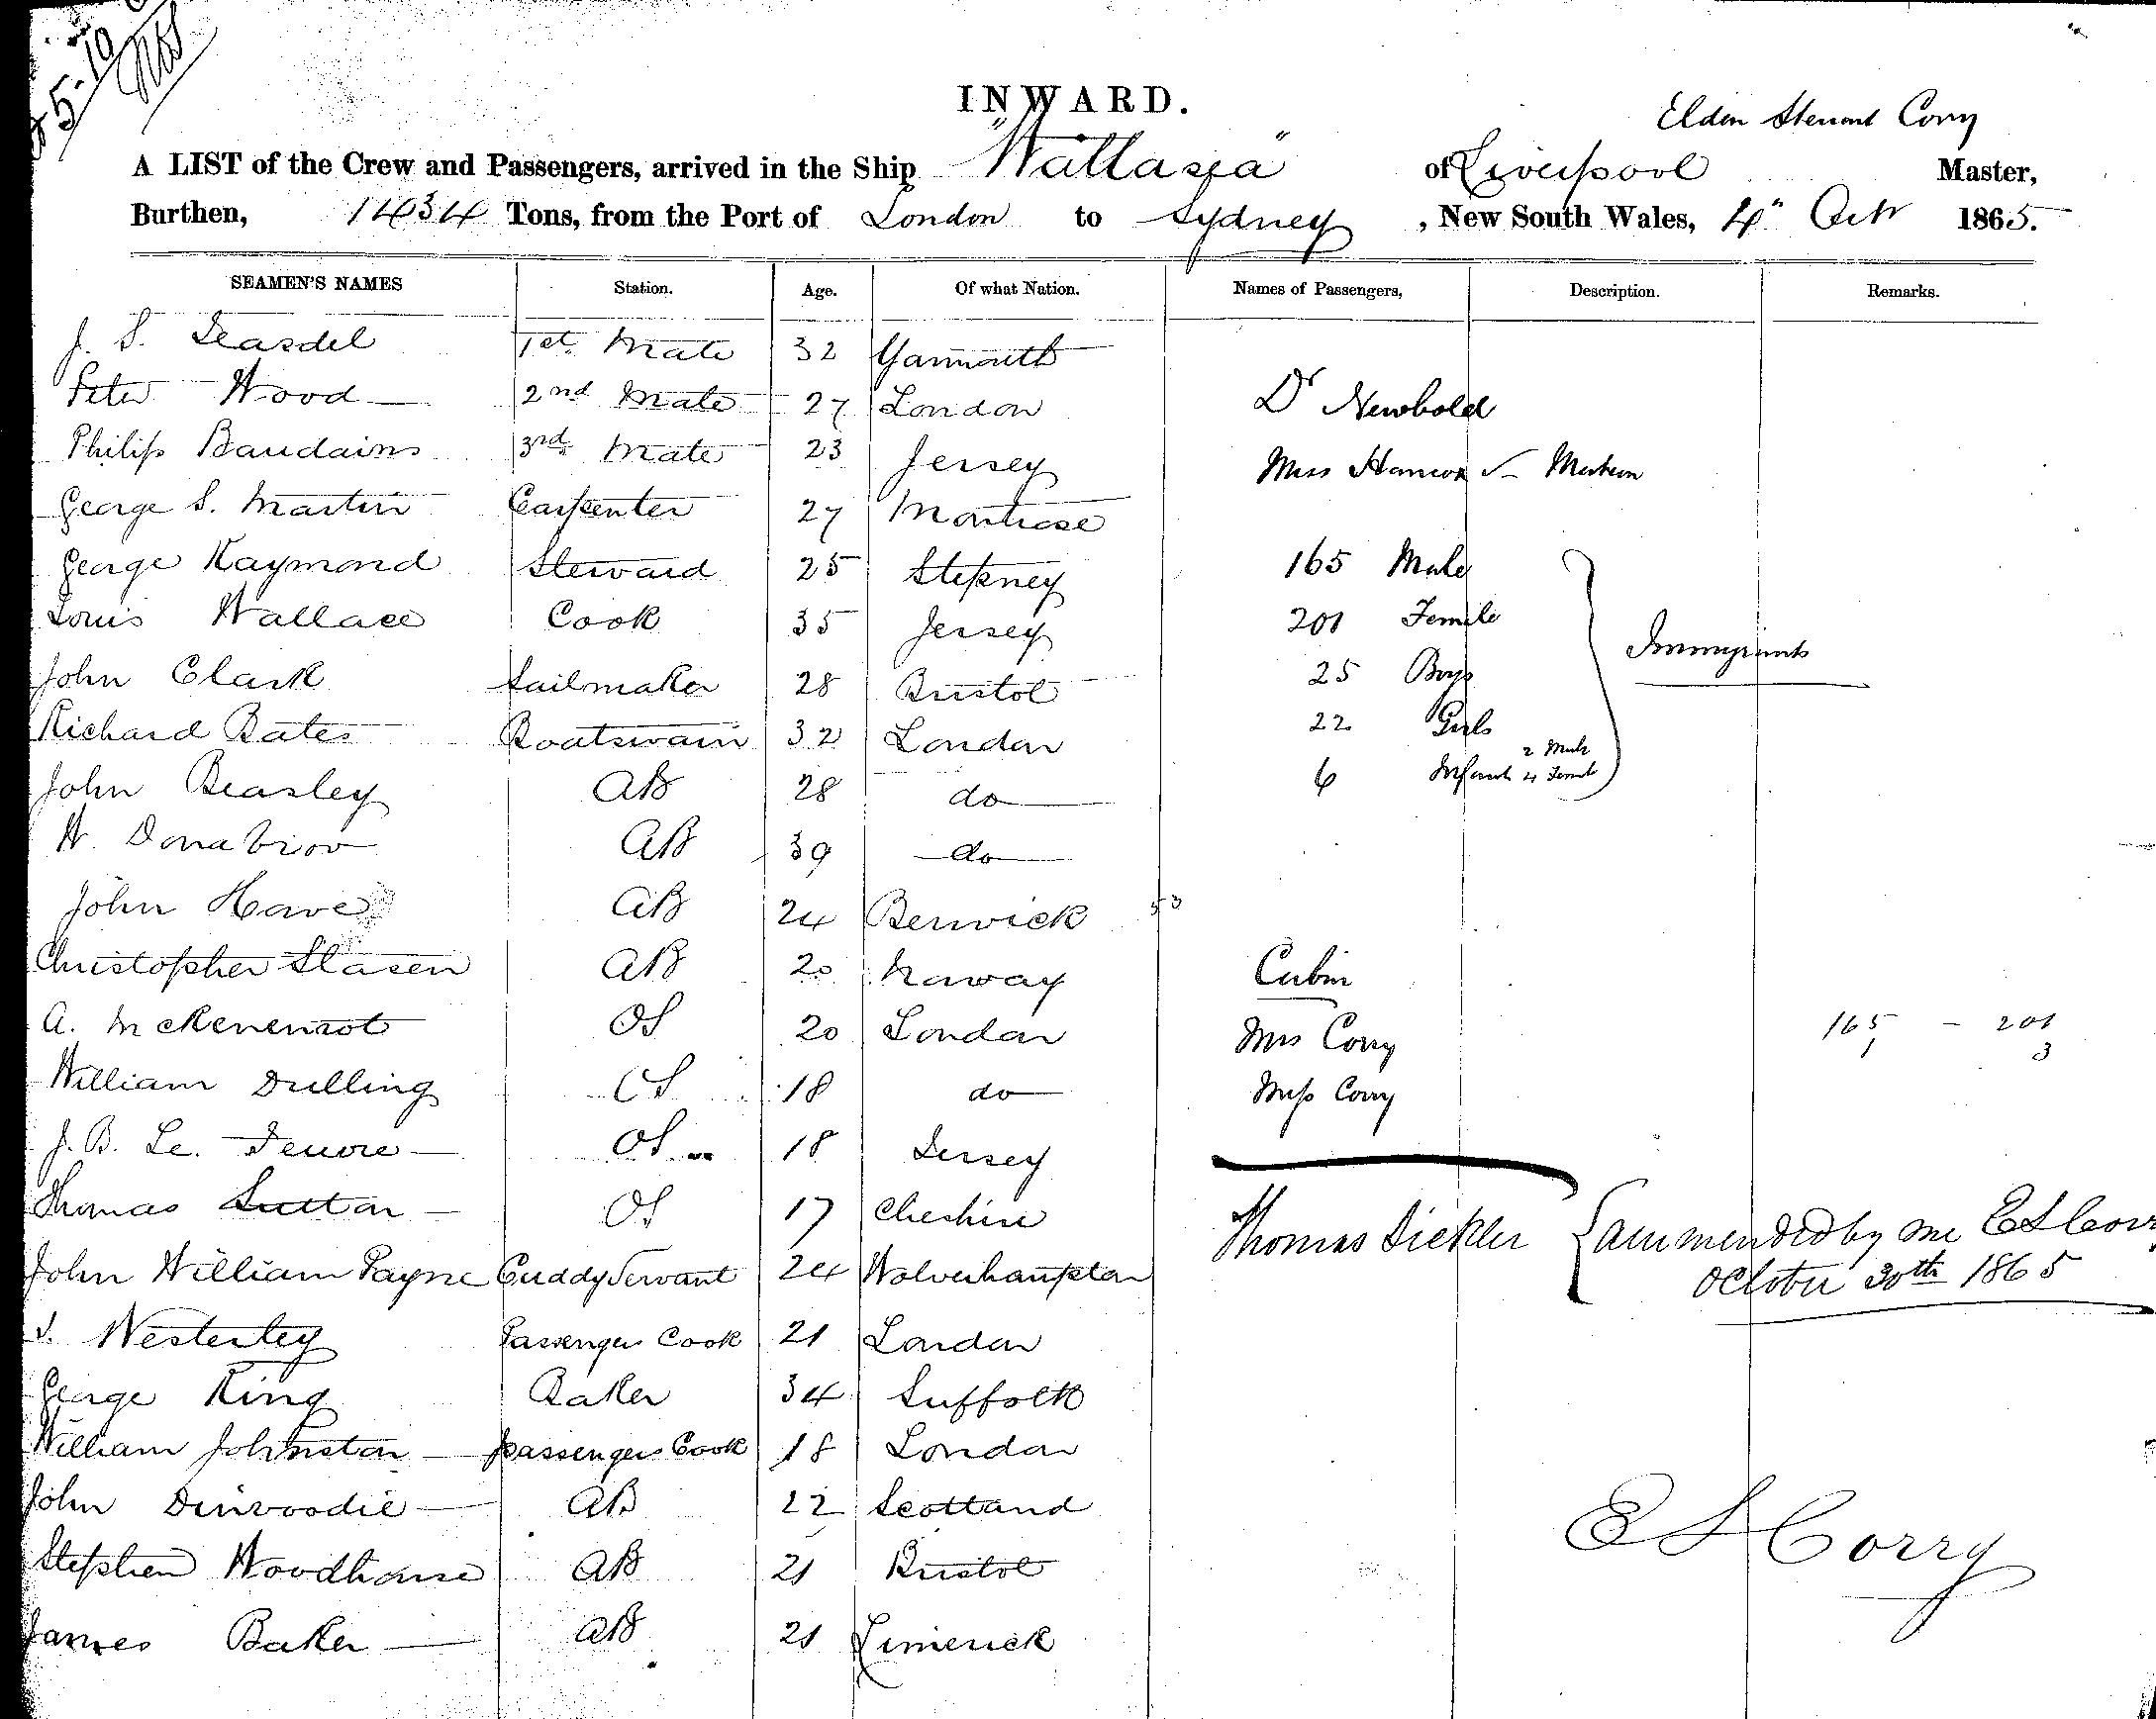 INWARD.
Elden Stewart Corry
A LIST of the Crew and Passengers, arrived in the Ship "Wallasea" of Liverpool Master,
Burthen, 1434 Tons, from the Port of London to Sydney, New South Wales, 4" Octr 1865.
SEAMEN'S NAMES Station. Age. Of what Nation. Names of Passengers, Description. Remarks.
J. S. Teasdel 1st Mate 32 Yarmouth
Peter Wood 2nd Mate 27 London Dr Newbold
Philip Baudains 3rd Mate 23 Jersey Miss Matron
George S. Martin Carpenter 27 Montrose
George Raymond Steward 25 Stepney 165 Male
Louis Wallace Cook 35 Jersey 201 Female
Immigrants
John Clark Sailmaker 28 Bristol 25 Boys
Richard Bates Boatswain 32 London 22 Girls
John Beasley AB 28 do 6 Infants 2 Male 4 Female
W. AB 39 do
John Have AB 24 Berwick
Christopher Slasen AB 20 Norway Cabin
A. OS 20 London Mrs Corry 165 - 201
1 3
William Drilling OS 18 do Miss Corry
J. B. Le. Feuvre OS 18 Jersey
Thomas Sutton OS 17 Cheshire Thomas Sickler { ammended by me E S Corry
October 30th 1865
John William Payne Cuddy Servant 24 Wolverhampton
Westerley Passengers Cook 21 London
George King Baker 34 Suffolk
William Johnston passengers Cook 18 London
John Dinwoodie AB 22 Scotland
E S Corry
Stephen Woodhouse AB 21 Bristol
James Baker AB 21 Limerick